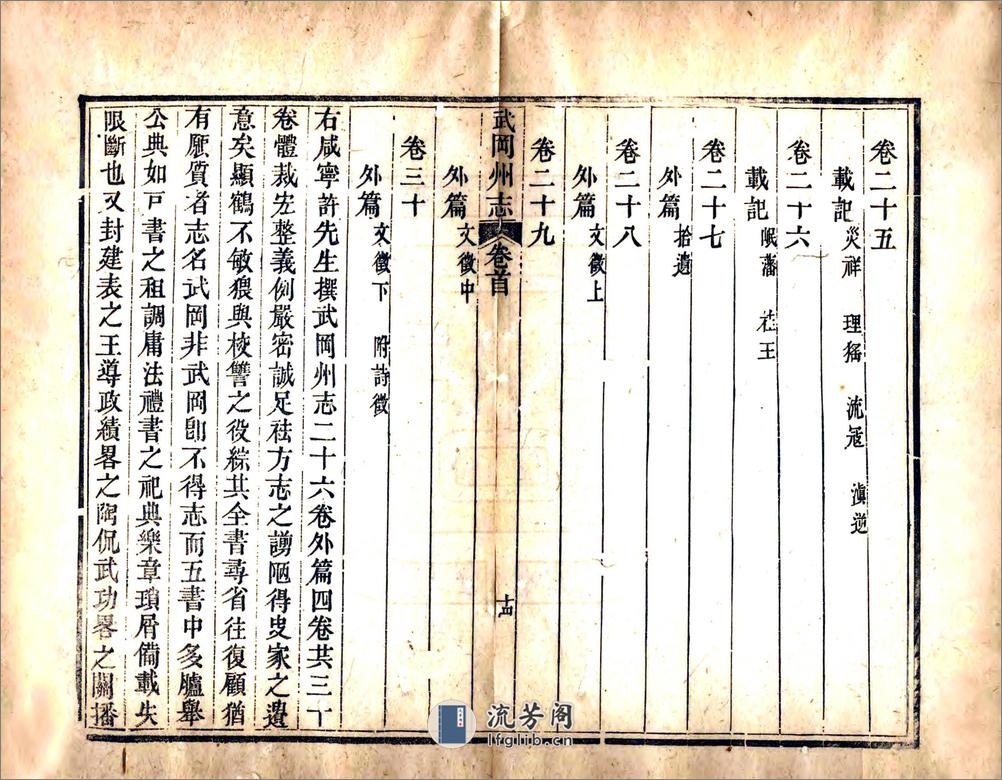 卷二十五
載記 災祥 理猺 流寇 滇逆
卷二十六
載記 岷藩 荘王
卷二十七
外篇 拾遺
卷二十八
外篇 文徵上
卷二十九
武岡州志 卷首 十四
外篇 文徵中
卷三十
外篇 文徵下 附詩徵
右咸寧許先生撰武岡州志二十六卷外篇四卷共三十
卷體裁宏整義例嚴密誠足祛方志之謭陋得史家之遺
意矣顯鶴不敏猥與校讐之役綜其全書尋省往復顧猶
有願質者志名武岡非武岡卽不得志而五書中多臚舉
公典如戸書之租調庸法禮書之祀典樂章瑣屑備載失
限斷也又封建表之王導政績畧之陶侃武功畧之關播
流芳阁
lfglib.cn